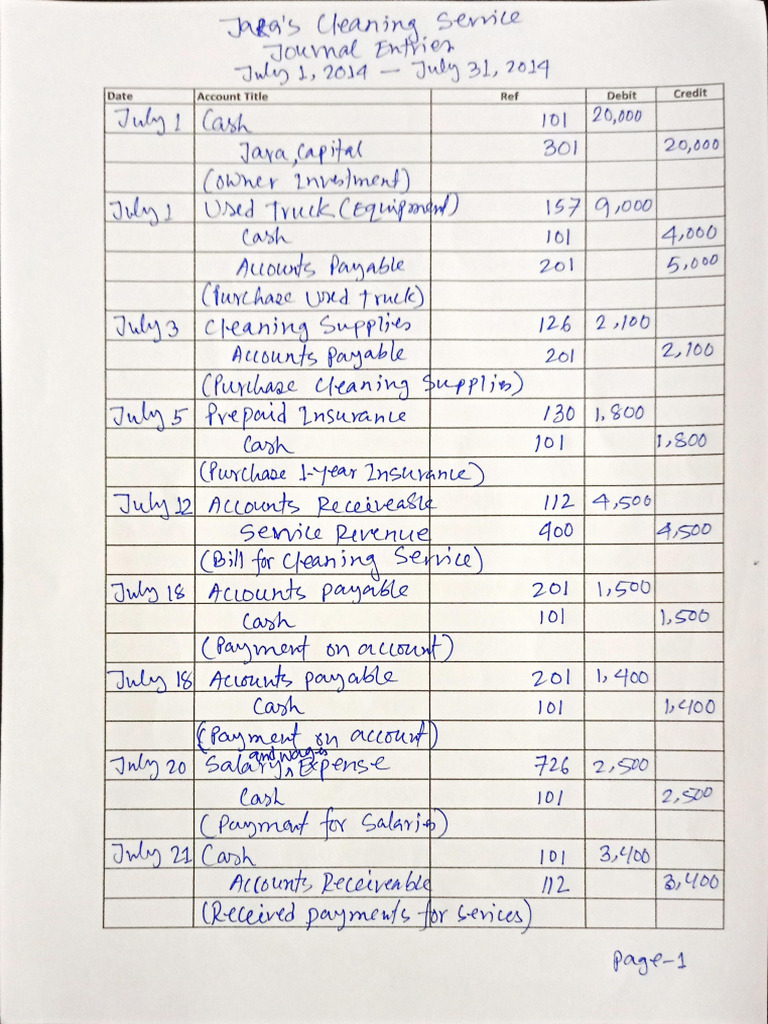 Jara's Cleaning Service
Journal Entries
July 1, 2014 — July 31, 2014
Date Account Title Ref Debit Credit
July 1 Cash 101 20,000
Jara, Capital 301 20,000
(Owner Investment)
July 1 Used Truck (Equipment) 157 9,000
Cash 101 4,000
Accounts Payable 201 5,000
(Purchase Used Truck)
July 3 Cleaning Supplies 126 2,100
Accounts Payable 201 2,100
(Purchase Cleaning Supplies)
July 5 Prepaid Insurance 130 1,800
Cash 101 1,800
(Purchase 1-year Insurance)
July 12 Accounts Receiveable 112 4,500
Service Revenue 400 4,500
(Bill for Cleaning Service)
July 18 Accounts payable 201 1,500
Cash 101 1,500
(Payment on account)
July 18 Accounts payable 201 1,400
Cash 101 1,400
(Payment on account)
July 20 Salary and wages Expense 726 2,500
Cash 101 2,500
(Payment for Salaries)
July 21 Cash 101 3,400
Accounts Receiveable 112 3,400
(Received payments for sevices)
Page-1